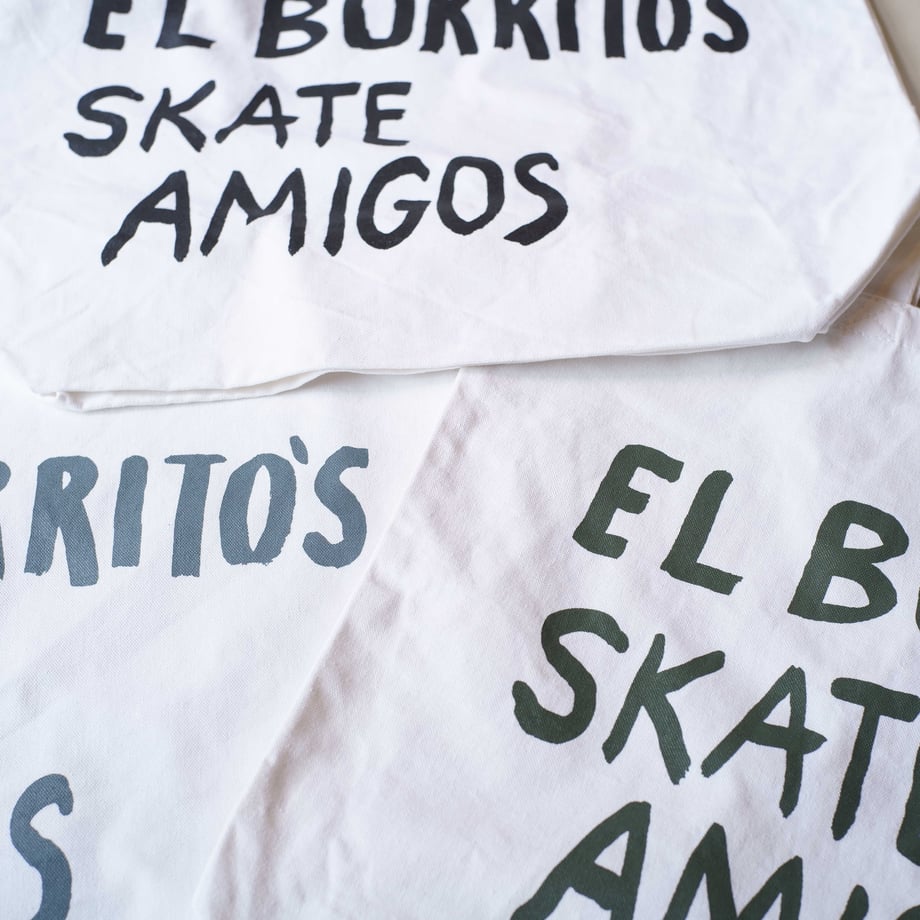 EL BURRITOS
SKATE
AMIGOS
RRITO'S
S
EL B
SKATE
AMI